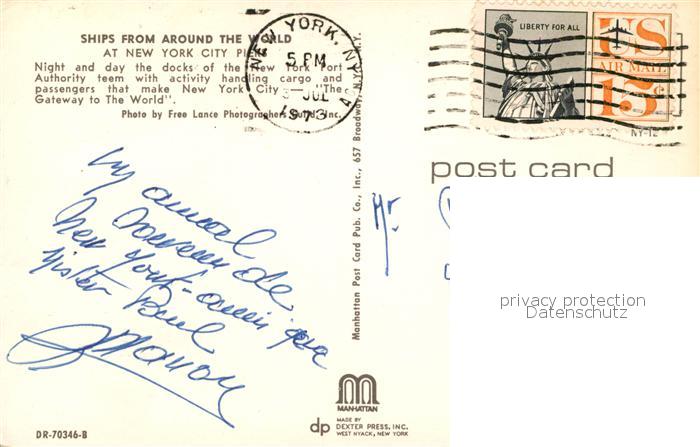 SHIPS FROM AROUND THE WORLD
AT NEW YORK CITY
Night and day the docks of the New York Port
Authority teem with activity handling cargo and
passengers that make New York City — "The
Gateway to The World".
Photo by Free Lance Photographers Guild, Inc.
NEW YORK, N.Y.
5 PM
JUL
1973
LIBERTY FOR ALL
US
AIR MAIL
15c
NY-12
post card
Manhattan Post Card Pub. Co., Inc., 657 Broadway, N.Y.C., N.Y.
Mr
de
New York
Paul
privacy protection
Datenschutz
MANHATTAN
dp MADE BY
DEXTER PRESS, INC.
WEST NYACK, NEW YORK
DR-70346-B